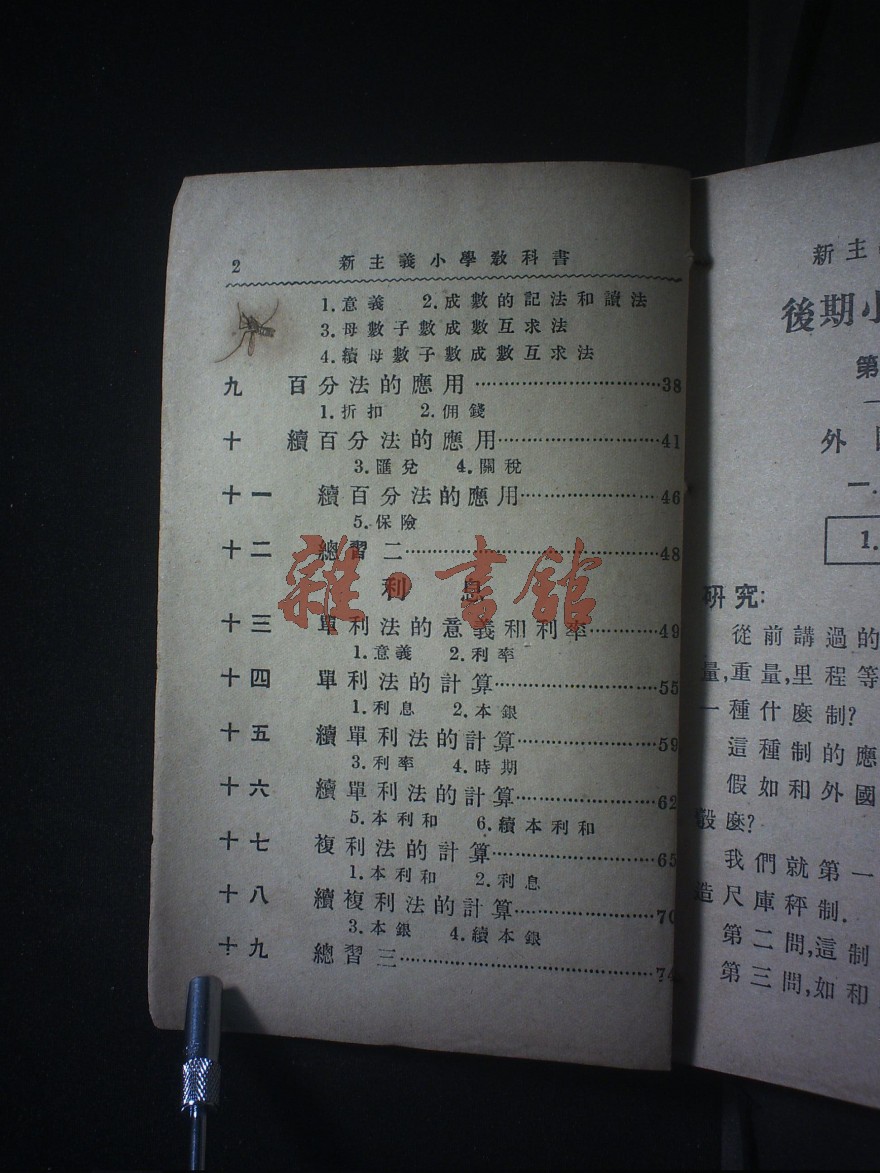 2 新主義小學教科書
1.意義 2.成數的記法和讀法
3.母數子數成數互求法
4.續母數子數成數互求法
九 百分法的應用……38
1.折扣 2.佣錢
十 續百分法的應用……41
3.匯兌 4.關稅
十一 續百分法的應用……46
5.保險
十二 總習二……48
利息
十三 單利法的意義和利率……49
1.意義 2.利率
十四 單利法的計算……55
1.利息 2.本銀
十五 續單利法的計算……59
3.利率 4.時期
十六 續單利法的計算……62
5.本利和 6.續本利和
十七 複利法的計算……65
1.本利和 2.利息
十八 續複利法的計算……70
3.本銀 4.續本銀
十九 總習三……74
雜·書館
新主
後期小
第
一
外
一.
1.
研究:
從前講過的
量,重量,里程等
一種什麽制?
這種制的應
假如和外國
麽?
我們就第一
造尺庫秤制.
第二問,這制
第三問,如和